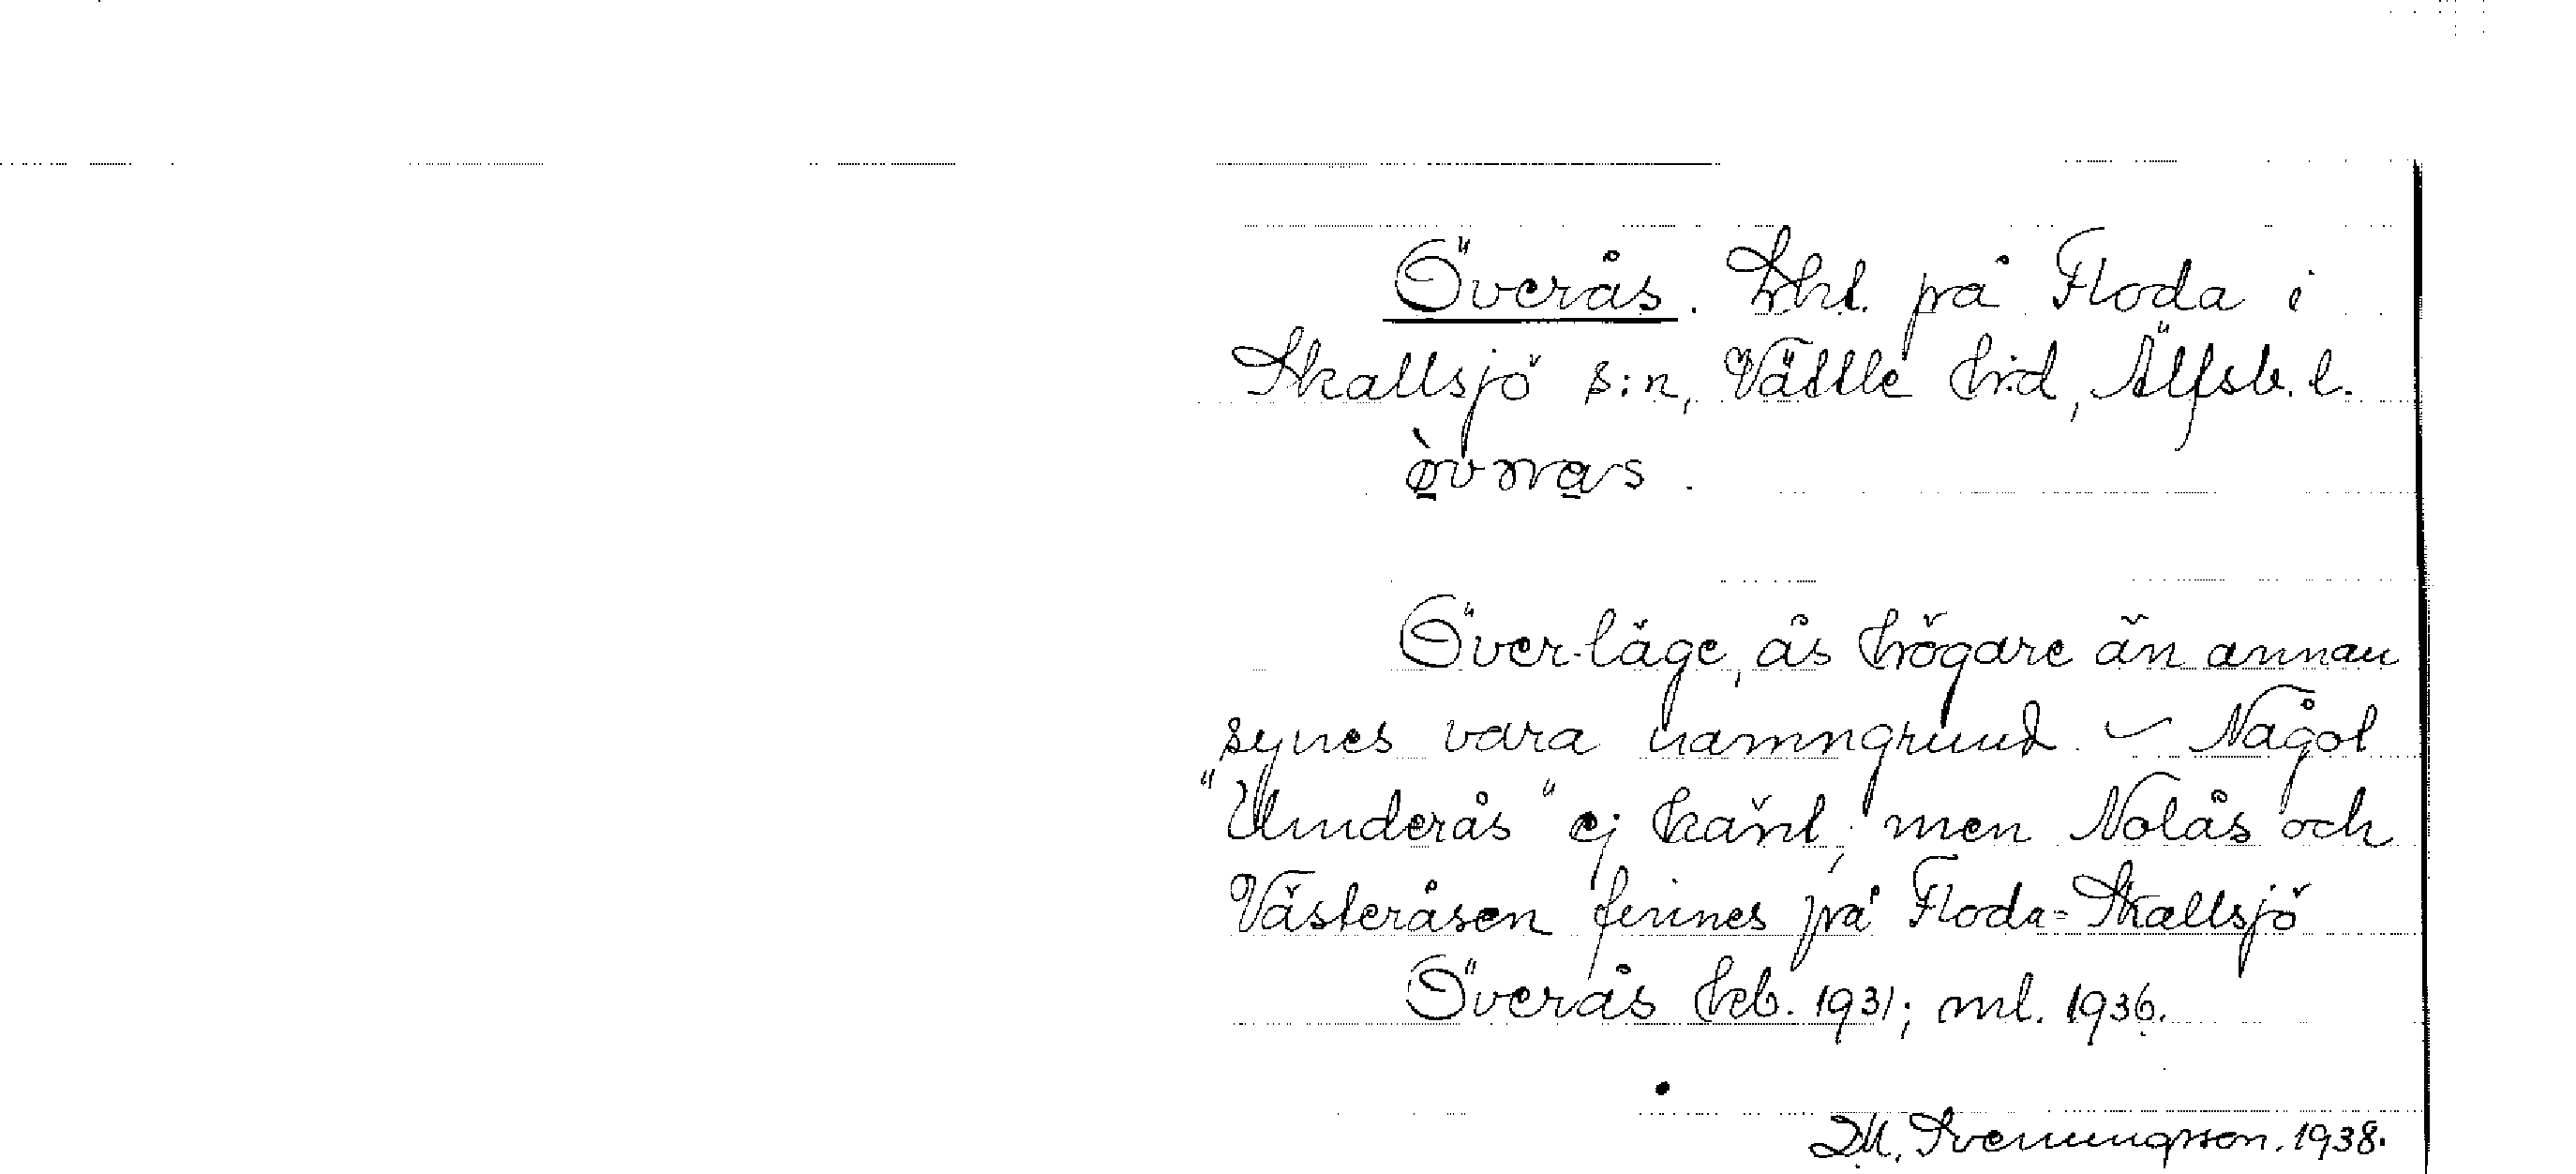 Överås. Lht. på Floda i
Skallsjö s:n, Vättle hrd, Älfsb. l.
Över-läge, ås högare än annan
synes vara namngrund. – Något
"Underås" ej känt; men Nolås och
Västeråsen finnes på Floda-Skallsjö
Överås kb. 1931; ml. 1936.
Svenungsson. 1938.